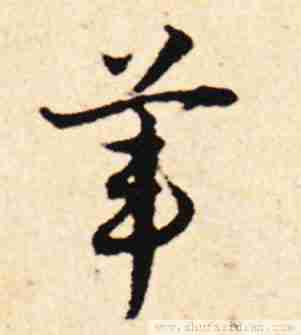 筆
www.shufazidian.com